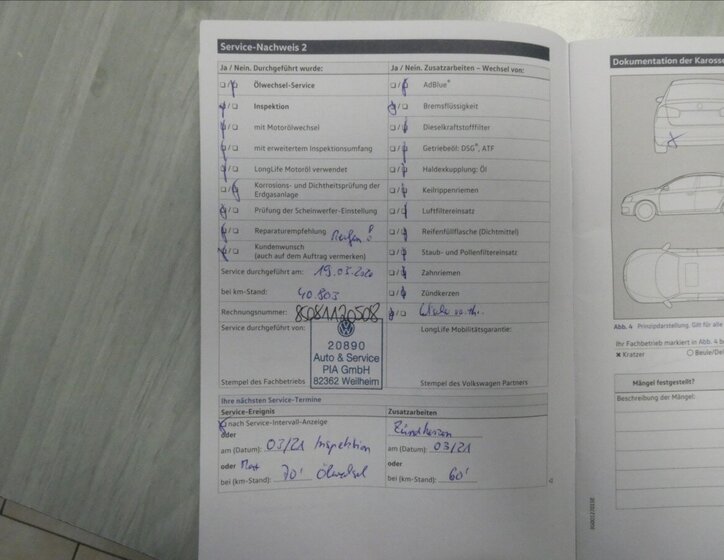 Service-Nachweis 2
Ja / Nein. Durchgeführt wurde:
Ölwechsel-Service
Inspektion
mit Motorölwechsel
mit erweitertem Inspektionsumfang
LongLife Motoröl verwendet
Korrosions- und Dichtheitsprüfung der
Erdgasanlage
Prüfung der Scheinwerfer-Einstellung
Reparaturempfehlung Reifen
Kundenwunsch
(auch auf dem Auftrag vermerken)
Service durchgeführt am: 19.03.2020
bei km-Stand: 40.803
Rechnungsnummer:
Service durchgeführt von:
20890
Auto & Service
PIA GmbH
82362 Weilheim
Stempel des Fachbetriebs
Ja / Nein. Zusatzarbeiten – Wechsel von:
AdBlue®
Bremsflüssigkeit
Dieselkraftstofffilter
Getriebeöl: DSG®, ATF
Haldexkupplung: Öl
Keilrippenriemen
Luftfiltereinsatz
Reifenfüllflasche (Dichtmittel)
Staub- und Pollenfiltereinsatz
Zahnriemen
Zündkerzen
LongLife Mobilitätsgarantie:
Stempel des Volkswagen Partners
Ihre nächsten Service-Termine
Service-Ereignis
nach Service-Intervall-Anzeige
oder
am (Datum): 03/21 Inspektion
oder
bei (km-Stand): 70' Ölwechsel
Zusatzarbeiten
Zündkerzen
am (Datum): 03/21
oder
bei (km-Stand): 60'
4
Dokumentation der Karosse
Abb. 4 Prinzipdarstellung. Gilt für alle
Ihr Fachbetrieb markiert in Abb. 4 b
x Kratzer
Beule/De
Mängel festgestellt?
Beschreibung der Mängel: